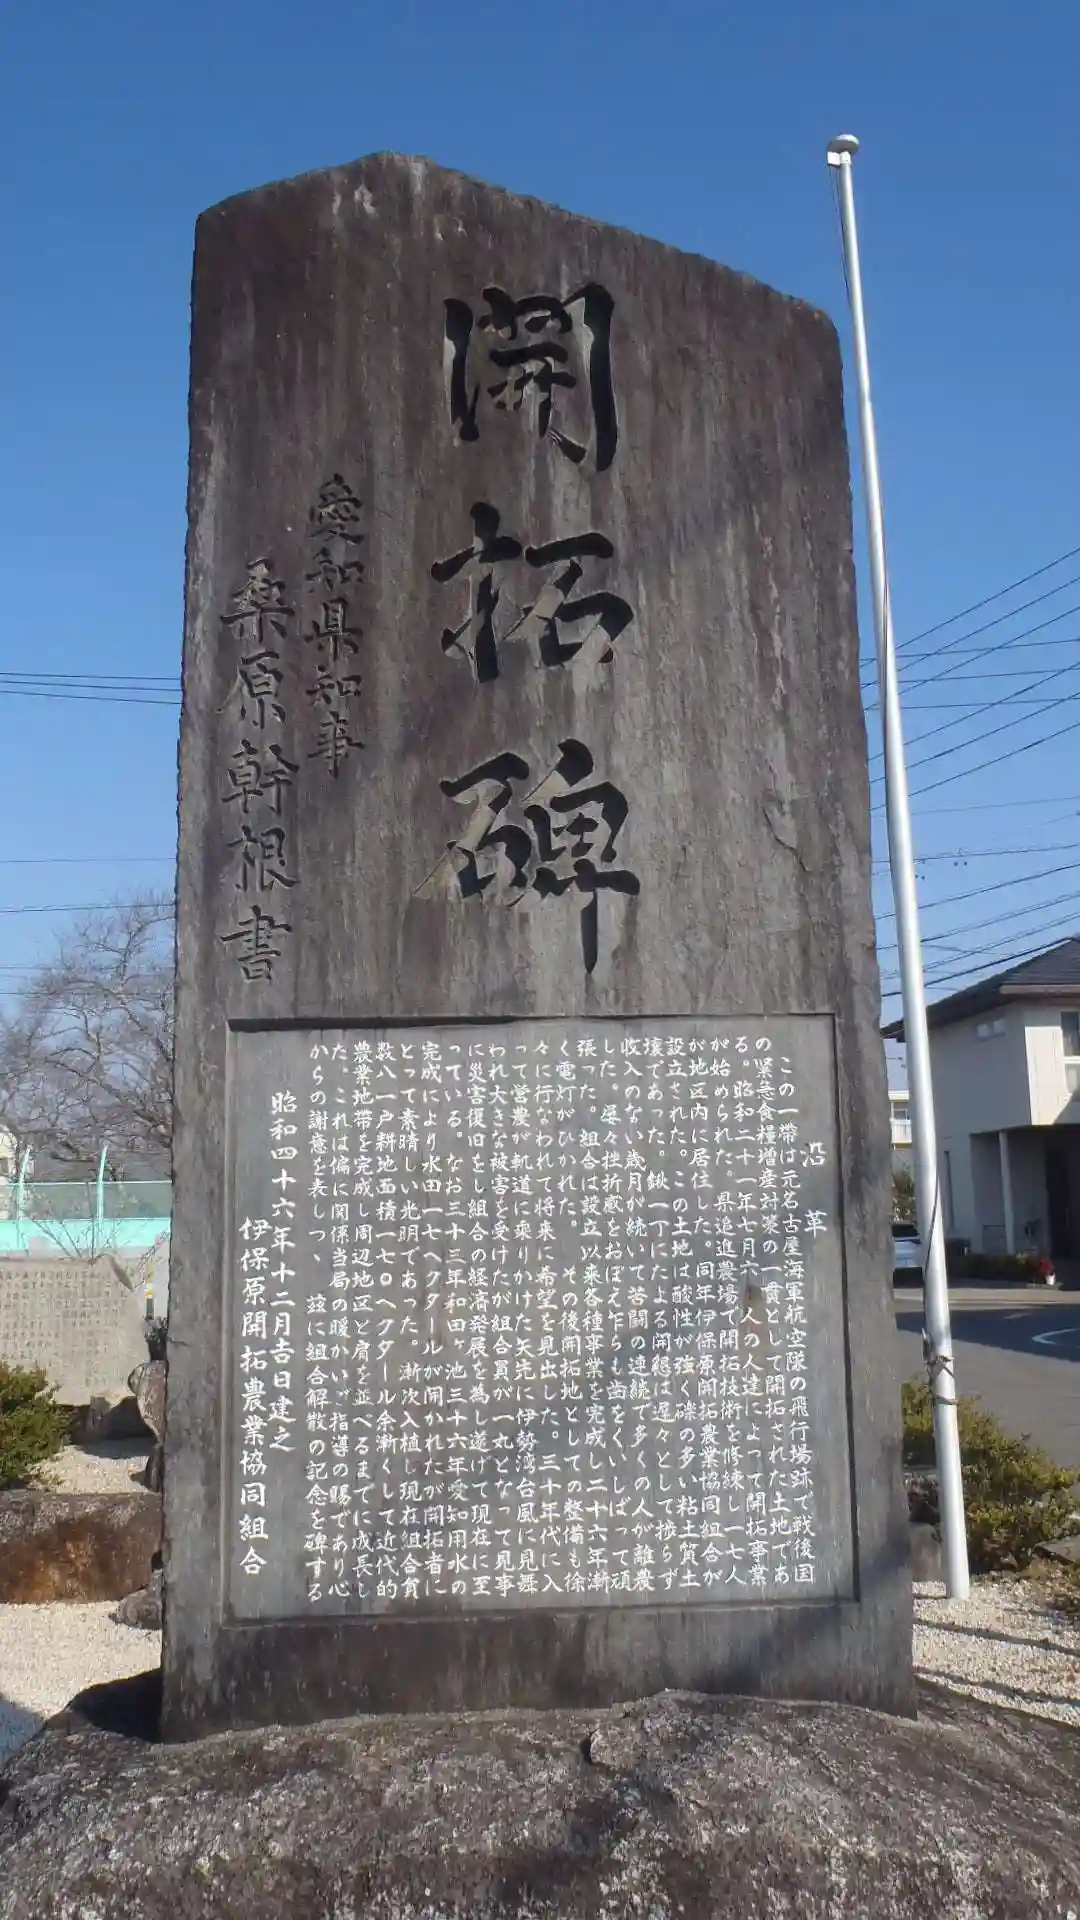 開拓碑
愛知県知事
桑原幹根書
沿革
この一帯は元名古屋海軍航空隊の飛行場跡で戦後国
の緊急食糧増産対策の一貫として開拓された土地であ
る。昭和二十一年七月六 人の人達によって開拓事業
が始められた。県追進農場で開拓技術を修練し一七人
が地区内に居住した。同年伊保原開拓農業協同組合が
設立された。この土地は酸性が強く礫の多い粘土質土
壌であった。鍬一丁にたよる開懇は遅々として捗らず
収入のない歳月が続いて苦闘の連続で多くの人が離農
した。屡々挫折感をおぼえ乍らも歯をくいしばって頑
張った。組合は設立以来各種事業を完成し二十六年漸
く電灯がひかれた。その後開拓地としての整備も徐
々に行なわれて将来に希望を見出した。三十年代に入
って営農が軌道に乗りかけた矢先に伊勢湾台風に見舞
われ大きな被害を受けたが組合員が一丸となって見事
に災害復旧をし組合の経済発展を為し遂げて現在に至
っている。なお三十三年和田ヶ池三十六年愛知用水の
完成により水田一七ヘクタールが開かれたが開拓者に
とって素晴しい光明であった。漸次入植し現在組合員
数八一戸耕地面積一七〇ヘクタール余漸くして近代的
農業地帯を完成し周辺地区と肩を並べるまでに成長し
た。これは偏に関係当局の暖かいご指導の賜であり心
からの謝意を表しつゝ 茲に組合解散の記念を碑する
昭和四十六年十二月吉日建之
伊保原開拓農業協同組合